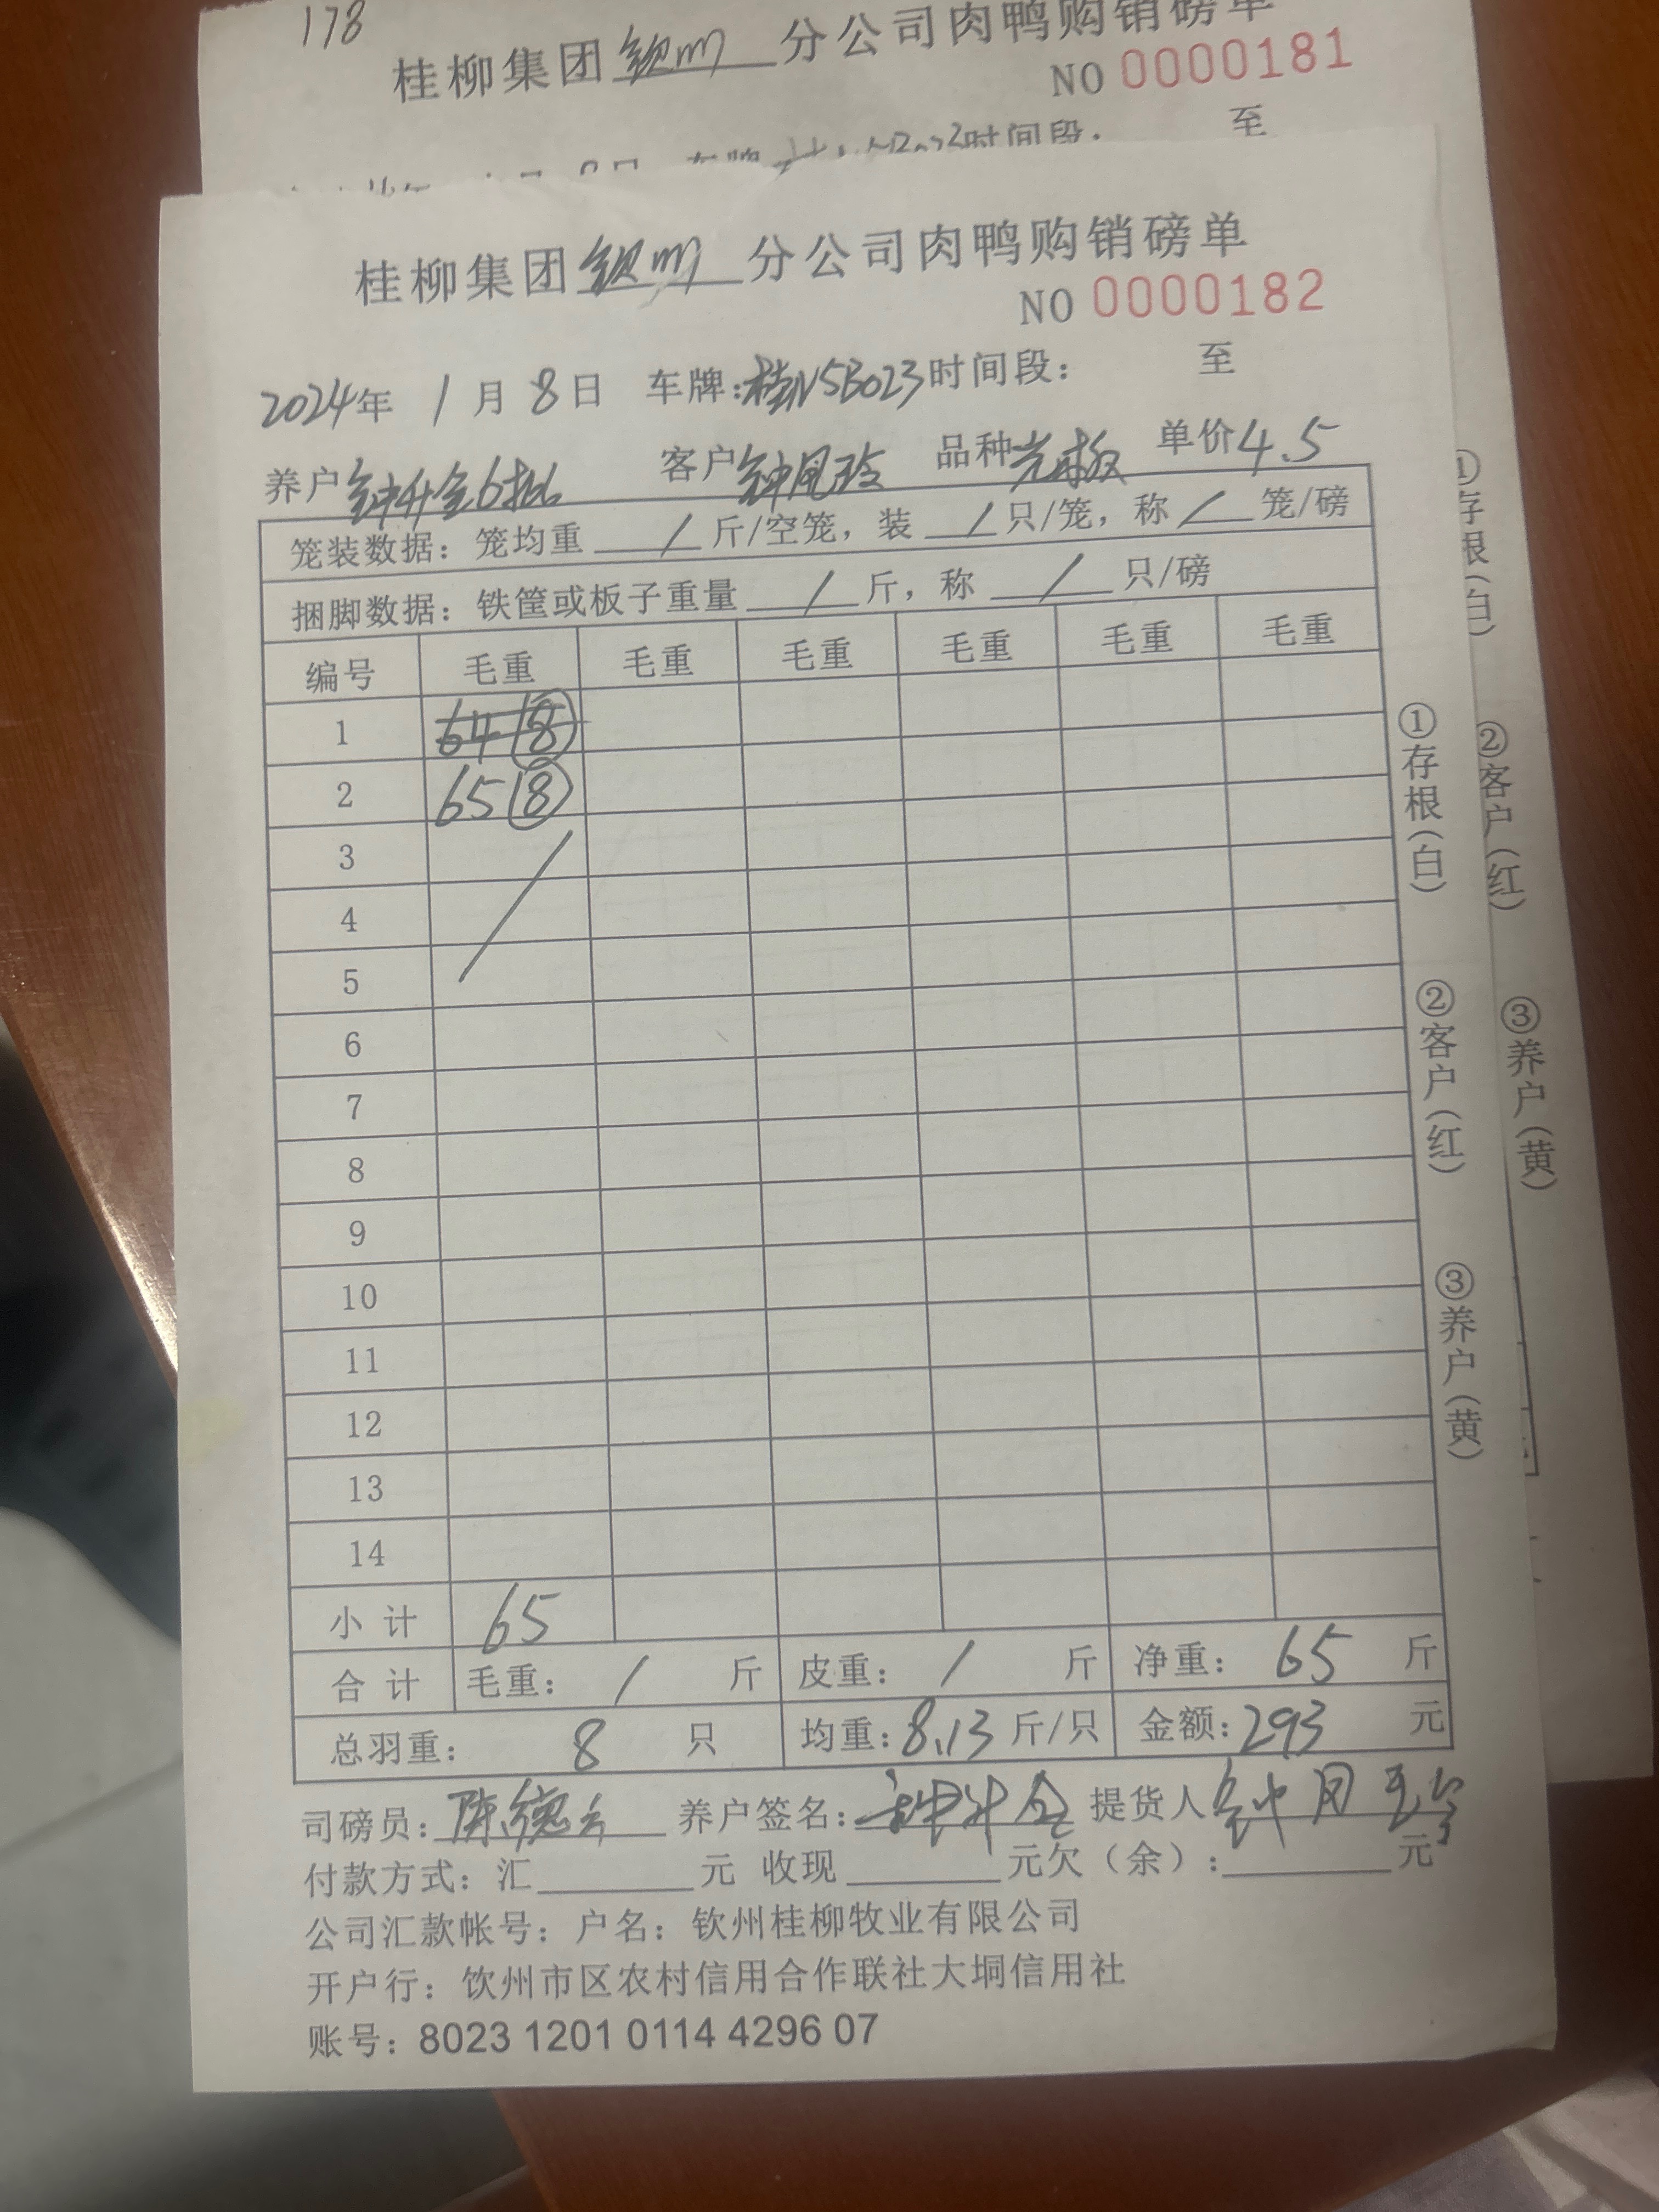 178
桂柳集团钦州分公司肉鸭购销磅单
NO 0000181
时间段: 至
桂柳集团钦州分公司肉鸭购销磅单
NO 0000182
2024年 1月8日 车牌:桂N5B023 时间段: 至
养户钟升金6批 客户钟凤玲 品种 单价4.5
笼装数据: 笼均重 / 斤/空笼, 装 / 只/笼, 称 / 笼/磅
捆脚数据: 铁筐或板子重量 / 斤, 称 / 只/磅
编号 毛重 毛重 毛重 毛重 毛重 毛重
1 64(8)
2 65(8)
3
4
5
6
7
8
9
10
11
12
13
14
小 计 65
合 计 毛重: / 斤 皮重: / 斤 净重: 65 斤
总羽重: 8 只 均重: 8.13 斤/只 金额: 293 元
司磅员: 陈德 养户签名: 钟升金 提货人 钟凤玲
付款方式: 汇 元 收现 元欠(余): 元
公司汇款帐号: 户名: 钦州桂柳牧业有限公司
开户行: 钦州市区农村信用合作联社大垌信用社
账号: 8023 1201 0114 4296 07
①存根(白) ②客户(红) ③养户(黄)
①存根(白) ②客户(红) ③养户(黄)